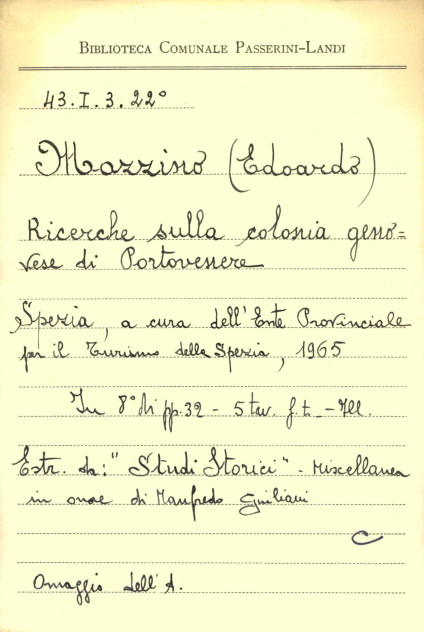 BIBLIOTECA COMUNALE PASSERINI-LANDI
43.I.3.22°
Mazzino (Edoardo)
Ricerche sulla colonia geno=
vese di Portovenere
Spezia, a cura dell'Ente Provinciale
per il Turismo della Spezia, 1965
In 8° di pp. 32 - 5 tav. f.t. - Ill.
Estr. da: "Studi Storici" - Miscellanea
in onore di Manfredo Giuliani
C
Omaggio dell'A.